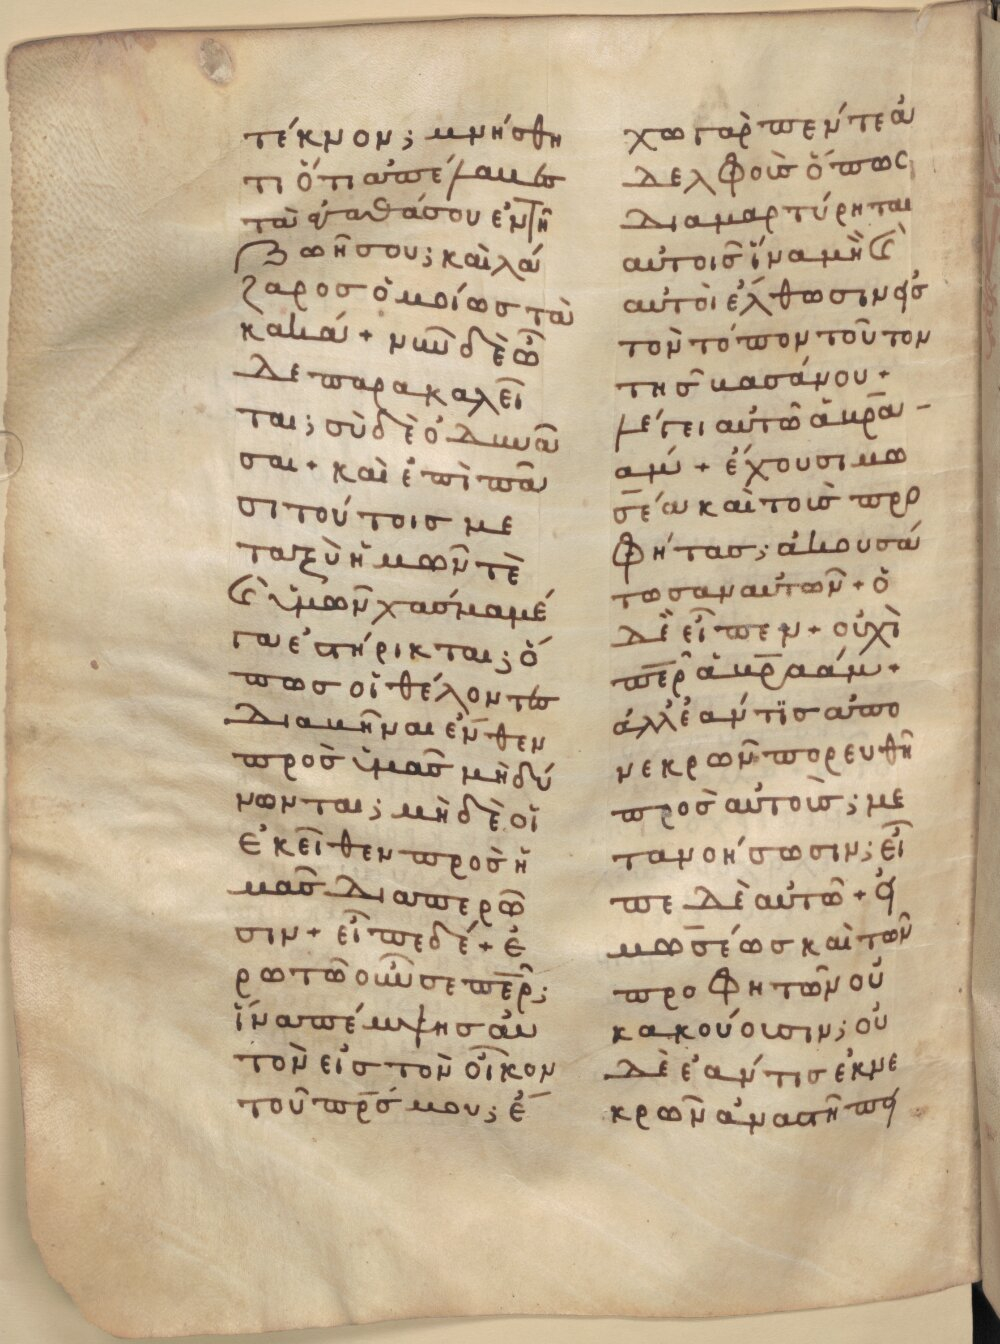 τέκνον; μνήσθη
τι ὅτι ἀπέλαβες
τὰ ἀγαθά σου ἐν τῆ
ζωῆ σου; καὶ λά
ζαρος ὁμοίως τὰ
κακά + νῦν δὲ ὧ
δε παρακαλεῖ
ται; σὺ δὲ ὀδυνᾶ
σαι + καὶ ἐπὶ πᾶ
σι τούτοις με
ταξὺ ἡμῶν τὲ
καὶ ὑμῶν χάσμα μέ
γα ἐστήρικται; ὅ
πως οἱ θέλοντες
διαβῆναι ἔνθεν
πρὸς ὑμᾶς μὴ δύ
νωνται; μὴ δὲ οἱ
ἐκεῖθεν πρὸς ἡ
μᾶς διαπερῶ
σιν + εἶπε δέ + ἐ
ρωτῶ οὖν σε περ;
ἵνα πέμψης αὐ
τὸν εἰς τὸν οἶκον
τοῦ πρς μου; ἔ
χω γὰρ πέντε ἀ
δελφοὺς ὅπως
διαμαρτύρηται
αὐτοῖς ἵνα μὴ καὶ
αὐτοὶ ἔλθωσιν εἰς
τὸν τόπον τοῦτον
τῆς βασάνου +
λέγει αὐτῶ ἀβρα
αμ + ἔχουσι μω
σέα καὶ τοὺς προ
φήτας; ἀκουσά
τωσαν αὐτῶν + ὁ
δὲ εἶπεν + οὐχὶ
περ ἀβραάμ +
ἀλλ' ἐάν τις ἀπὸ
νεκρῶν πορευθῆ
πρὸς αὐτούς; με
τανοήσωσιν; εἶ
πε δὲ αὐτῶ + εἰ
μωσέως καὶ τῶν
προφητῶν οὐ
κ ἀκούουσιν; οὐ
δὲ ἐάν τις ἐκ νε
κρῶν ἀναστῆ πει